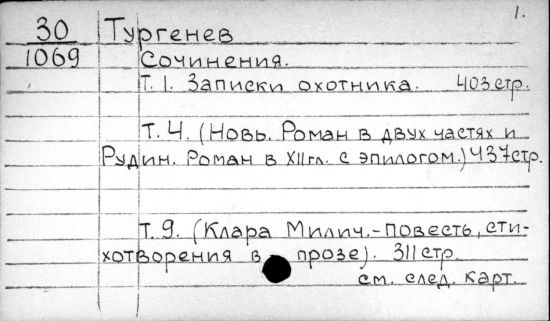 1.
30 Тургенев
1069 Сочинения.
Т. 1. Записки охотника. 403 стр.
Т. 4. (Новь. Роман в двух частях и
Рудин. Роман в XII гл. с эпилогом.) 437 стр.
Т. 9. (Клара Милич.-повесть, сти-
хотворения в прозе). 311 стр.
см. след. карт.